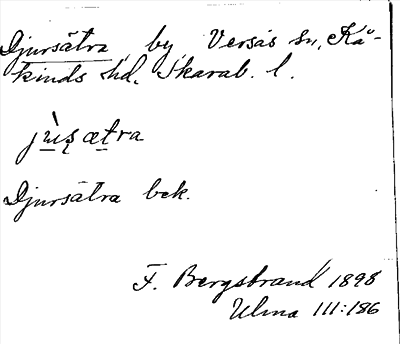 Djursätra, by, Versås sn, Kå-
kinds hd. Skarab. l.
jùs̨ætra
Djursätra bek.
F. Bergstrand 1898
Ulma III:186